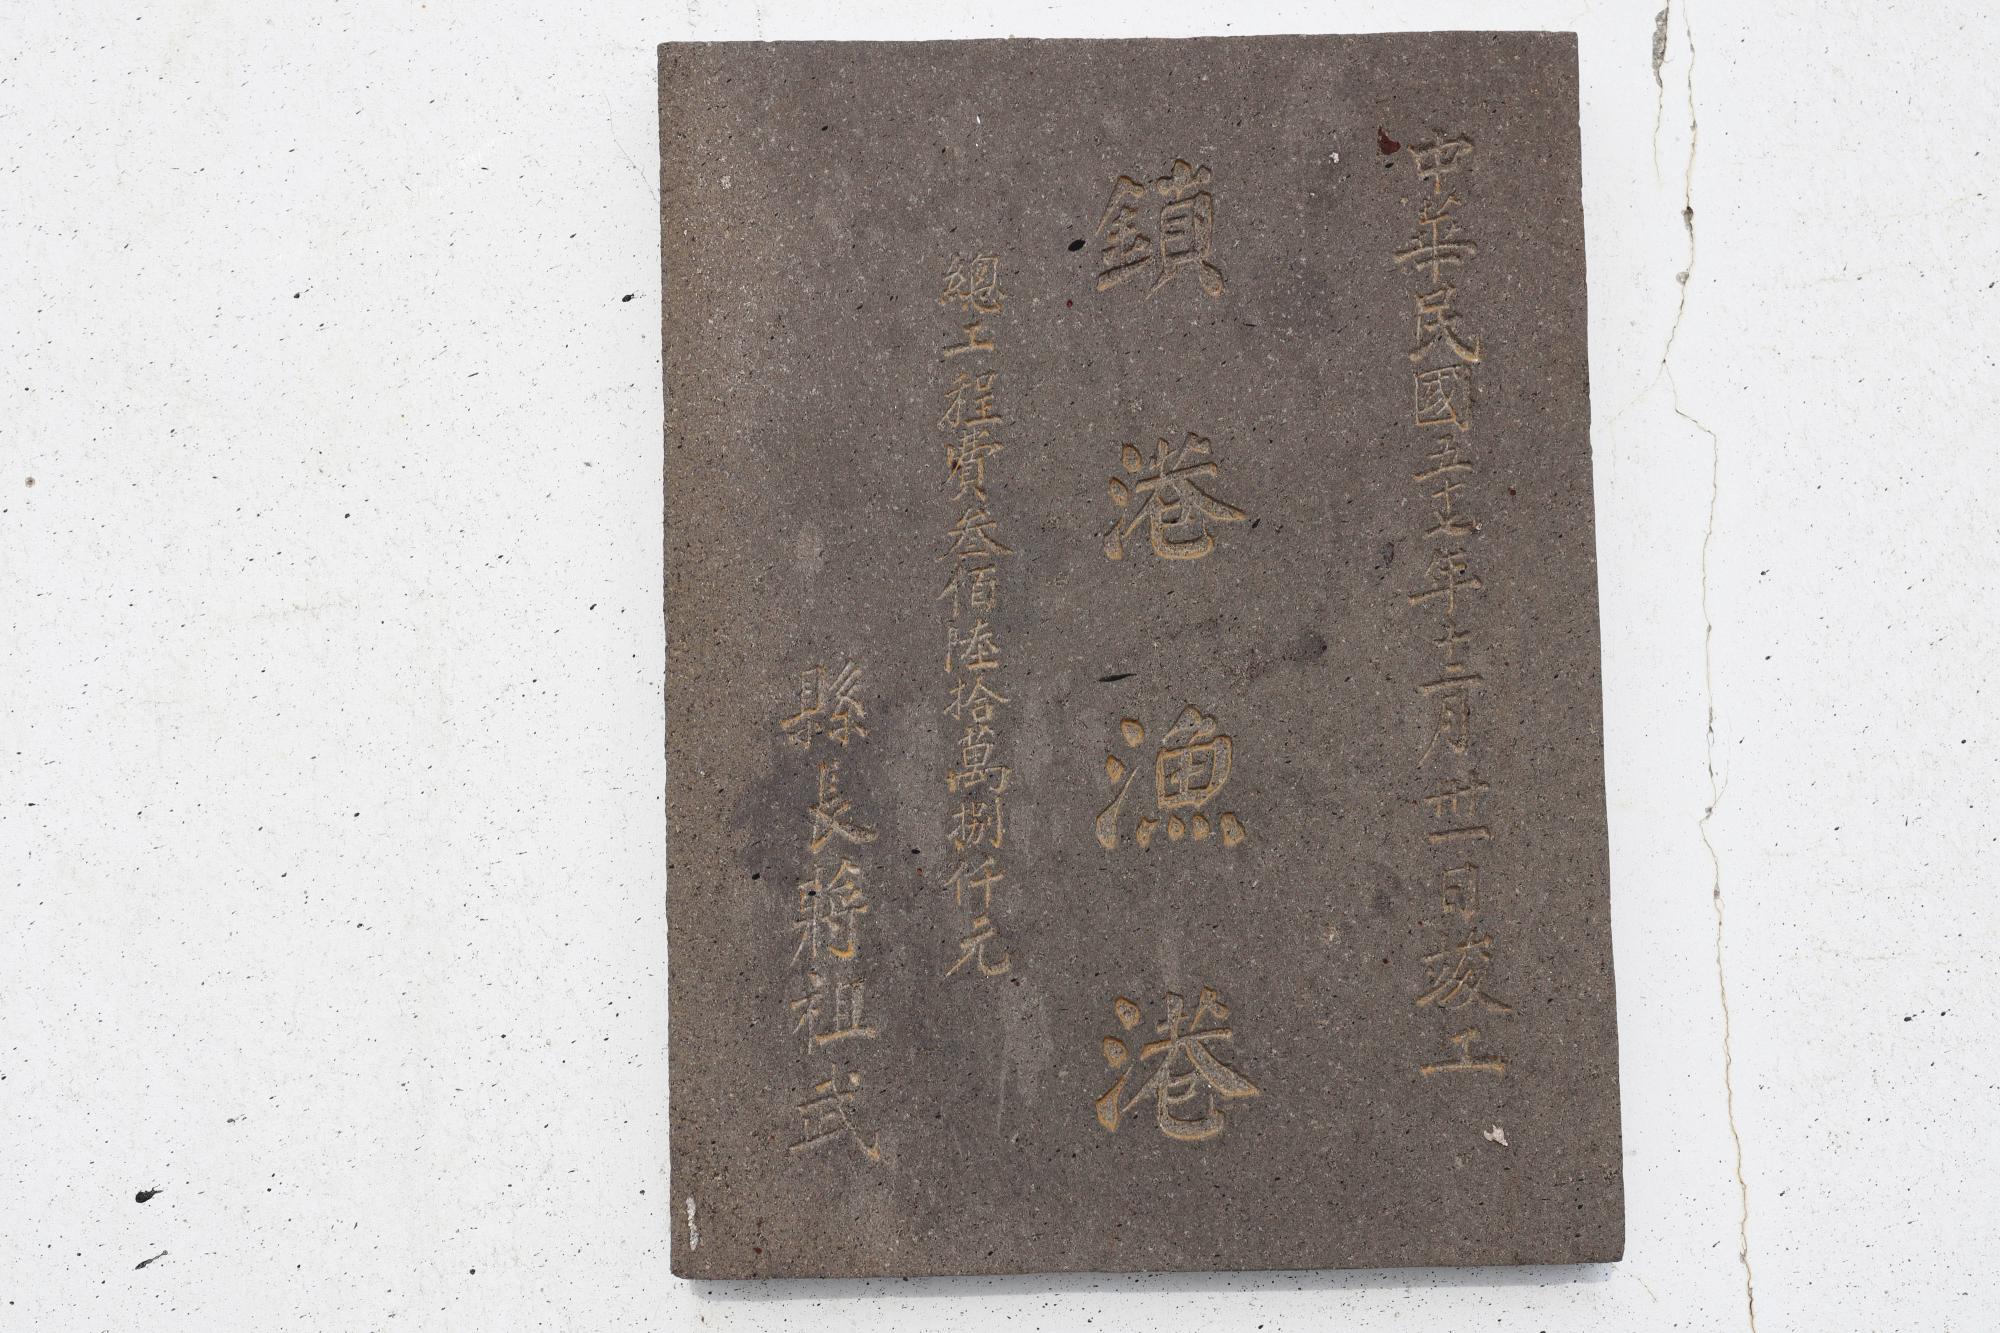 中華民國五十七年十二月卅一日竣工
鎖港漁港
總工程費叁佰陸拾萬捌仟元
縣長蔣祖武